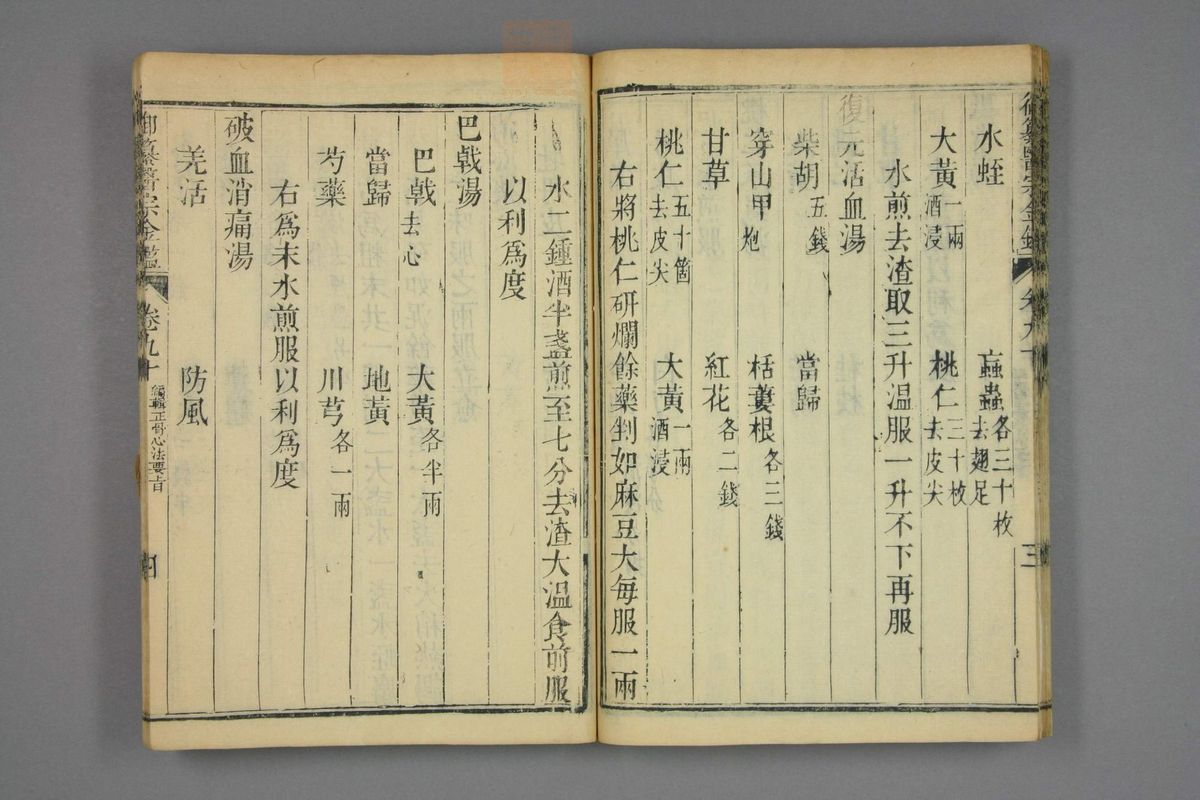 御纂醫宗金鑑 卷九十 三
水蛭 蝱蟲各三十枚去翅足
大黃一兩酒浸 桃仁三十枚去皮尖
水煎去渣取三升温服一升不下再服
復元活血湯
柴胡五錢 當歸
穿山甲炮 栝蔞根各三錢
甘草 紅花各二錢
桃仁五十箇去皮尖 大黃一兩酒浸
右將桃仁研爛餘藥剉如麻豆大每服一兩
水二鍾酒半盞煎至七分去渣大温食前服
以利爲度
巴戟湯
巴戟去心 大黃各半兩
當歸 地黃
芍藥 川芎各一兩
右爲末水煎服以利爲度
破血消痛湯
羌活 防風
御纂醫宗金鑑 卷九十 編輯正骨心法要旨 四